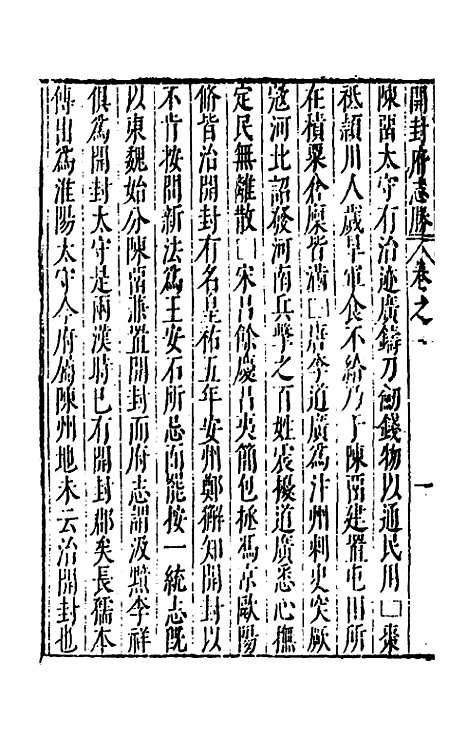 開封府志勝 八卷之一 一
陳留太守有治迹廣鑄刀劍錢物以通民用□棗
祗潁川人歲旱軍食不給乃于陳留建置屯田所
在積粟倉廩皆滿□唐李道廣爲汴州刺史突厥
寇河北詔發河南兵擊之百姓衰擾道廣悉心撫
定民無離散□宋呂餘慶呂夷簡包拯馮京歐陽
脩皆治開封有名皇祐五年安州鄭獬知開封以
不肯按問新法爲王安石所忌而罷按一統志旣
以東魏始分陳留兼置開封而府志謂汲黯李祥
俱爲開封太守是兩漢時已有開封郡矣長孺本
傳出爲淮陽太守今府屬陳州地未云治開封也